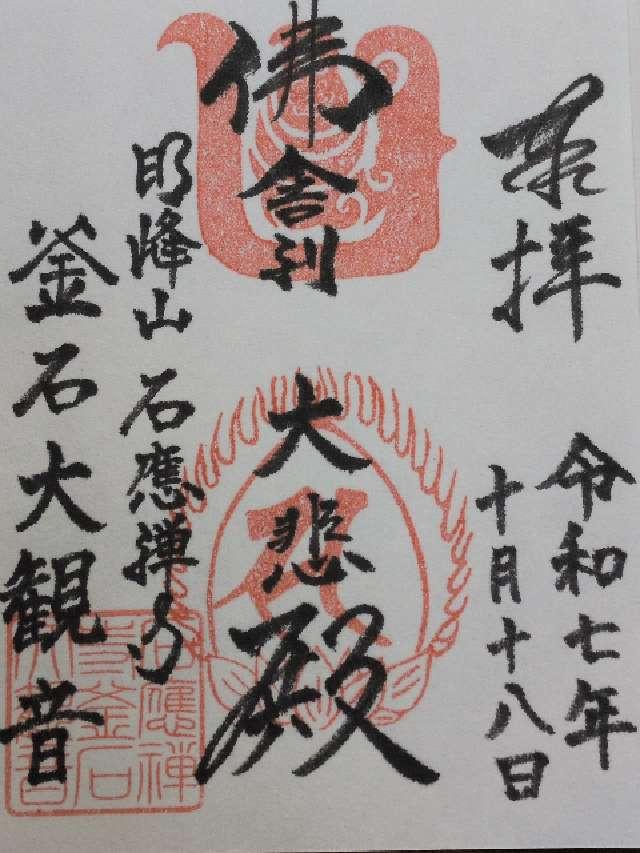 奉拝
令和七年
十月十八日
佛舎利
大悲殿
明峰山 石應禅寺
釜石大観音
石應禅
寺釜石
大観音